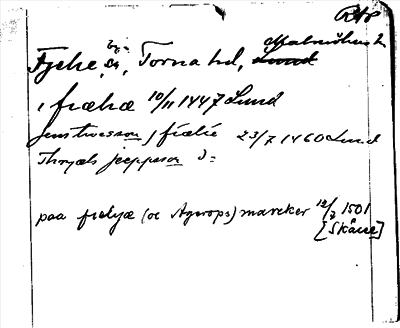 Fjelie, by o. sn, Torna hd, Malmöhus l.
i fiælæ 10/11 1447 Lund
Jens truesson j fiælie 23/7 1460 Lund
Thryæls jeppsson
paa fielyæ (oc Agerops) marcker 12/7 1501
[Skåne]